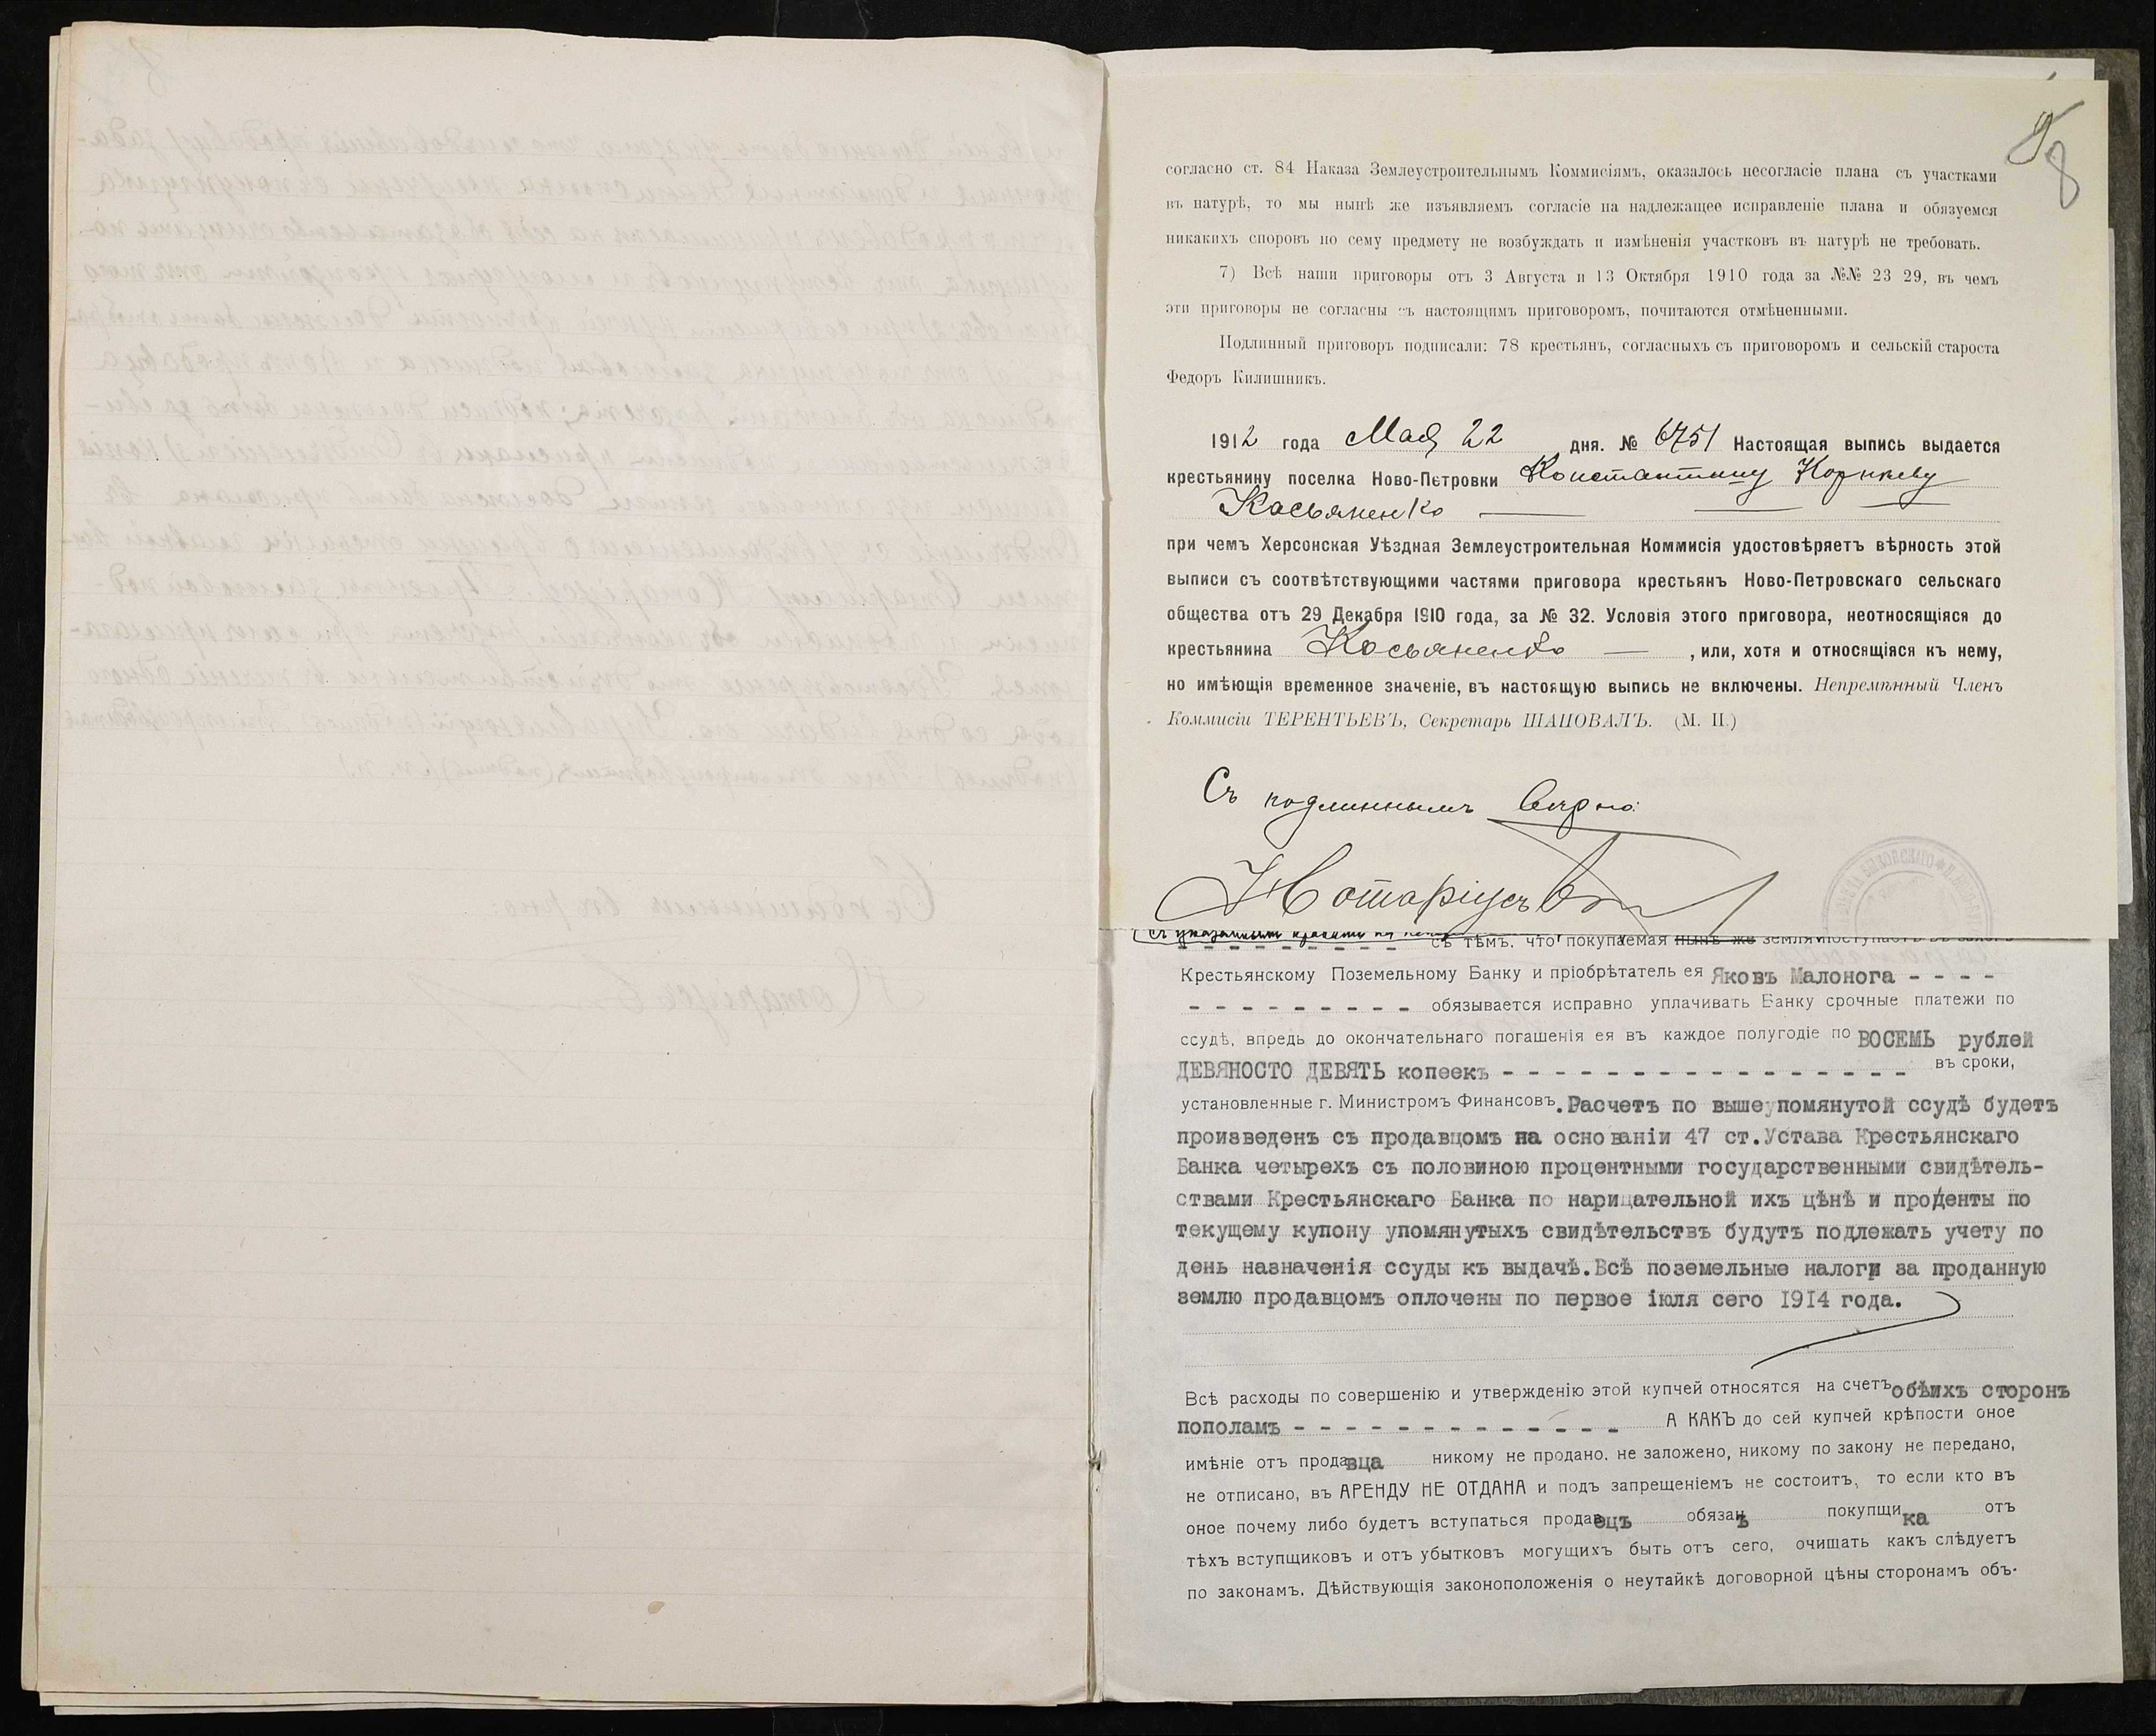 8
согласно ст. 84 Наказа Землеустроительнымъ Коммисіямъ, оказалось несогласіе плана съ участками
въ натурѣ, то мы нынѣ же изъявляемъ согласіе на надлежащее исправленіе плана и обязуемся
никакихъ споровъ по сему предмету не возбуждать и измѣненія участковъ въ натурѣ не требовать.
7) Всѣ наши приговоры отъ 3 Августа и 13 Октября 1910 года за №№ 23 29, въ чемъ
эти приговоры не согласны съ настоящимъ приговоромъ, почитаются отмѣненными.
Подлинный приговоръ подписали: 78 крестьянъ, согласныхъ съ приговоромъ и сельскій староста
Федоръ Килишникъ.
1912 года Мая 22 дня. № 6751 Настоящая выпись выдается
крестьянину поселка Ново-Петровки Константину Корнееву
Касьяненко
при чемъ Херсонская Уѣздная Землеустроительная Коммисія удостовѣряетъ вѣрность этой
выписи съ соотвѣтствующими частями приговора крестьянъ Ново-Петровскаго сельскаго
общества отъ 29 Декабря 1910 года, за № 32. Условія этого приговора, неотносящіяся до
крестьянина Касьяненко , или, хотя и относящіяся къ нему,
но имѣющія временное значеніе, въ настоящую выпись не включены. Непремѣнный Членъ
Коммисіи ТЕРЕНТЬЕВЪ, Секретарь ШАПОВАЛЪ. (М. П.)
Съ подлиннымъ вѣрно:
Нотаріусъ
съ тѣмъ, что покупаемая нынѣ же земля поступаетъ въ залогъ
Крестьянскому Поземельному Банку и пріобрѣтатель ея Яковъ Малонога - - - -
- - - - - - - - - обязывается исправно уплачивать Банку срочные платежи по
ссудѣ, впредь до окончательнаго погашенія ея въ каждое полугодіе по ВОСЕМЬ рублей
ДЕВЯНОСТО ДЕВЯТЬ копеекъ - - - - - - - - - - - - - - - - въ сроки,
установленные г. Министромъ Финансовъ. Расчетъ по вышеупомянутой ссудѣ будетъ
произведенъ съ продавцомъ на основаніи 47 ст.Устава Крестьянскаго
Банка четырехъ съ половиною процентными государственными свидѣтель-
ствами Крестьянскаго Банка по нарицательной ихъ цѣнѣ и проценты по
текущему купону упомянутыхъ свидѣтельствъ будутъ подлежать учету по
день назначенія ссуды къ выдачѣ.Всѣ поземельные налоги за проданную
землю продавцомъ оплочены по первое іюля сего 1914 года.
Всѣ расходы по совершенію и утвержденію этой купчей относятся на счетъ обѣихъ сторонъ
пополамъ - - - - - - - - - - - - - А КАКЪ до сей купчей крѣпости оное
имѣніе отъ продавца никому не продано. не заложено, никому по закону не передано,
не отписано, въ АРЕНДУ НЕ ОТДАНА и подъ запрещеніемъ не состоитъ, то если кто въ
оное почему либо будетъ вступаться продавецъ обязанъ покупщика отъ
тѣхъ вступщиковъ и отъ убытковъ могущихъ быть отъ сего, очишать какъ слѣдуетъ
по законамъ. Дѣйствующія законоположенія о неутайкѣ договорной цѣны сторонамъ объ-